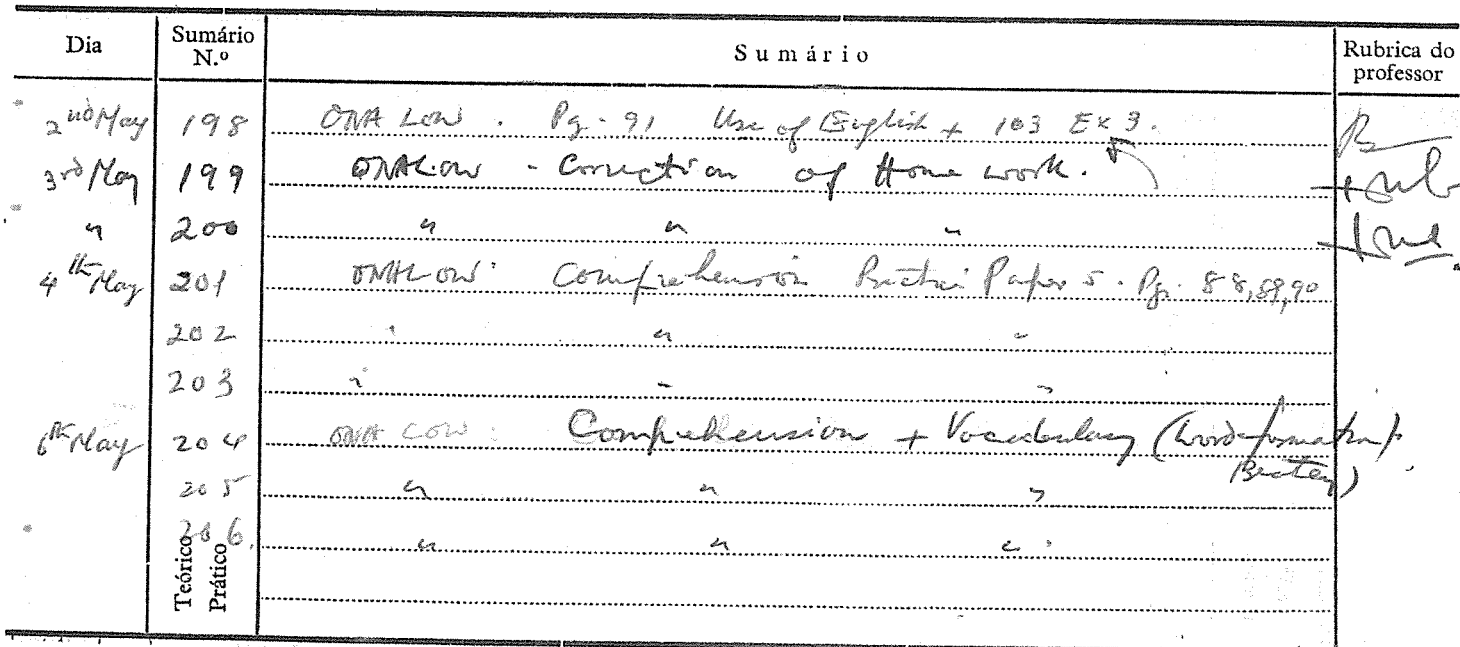 Dia Sumário N.º Sumário Rubrica do professor
2nd May 198 Pg. 91 Use of English + 103 Ex 3.
3rd May 199 - Correction of Home work.
" 200 " " "
4th May 201 Comprehension Paper 5. Pg. 88, 89, 90
202 " " "
203 " " "
6th May 204 Comprehension + Vocabulary (word formation
205 " " "
206. " " "
Teórico
Prático